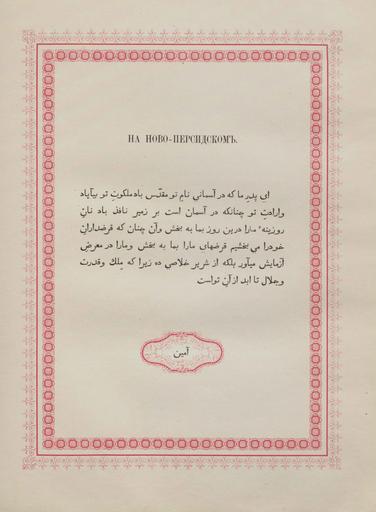 НА НОВО-ПЕРСИДСКОМЪ.
ای پدرِ ما که در آسمانی نامِ تو مقدّس باد ملکوتِ تو بیآیاد
وارادتِ تو چنانکه در آسمان است بر زمیر نافذ باد نانِ
روزینهٔ مارا درین روز بما به بخش وآن چنان که قرضدارانِ
خودرا می بخشیم قرضهایِ مارا بما به بخش ومارا در معرضِ
آزمایش میآور بلکه از شریر خلاصی ده زیرا که ملك وقدرت
وجلال تا ابد از آنِ تواست
آمین